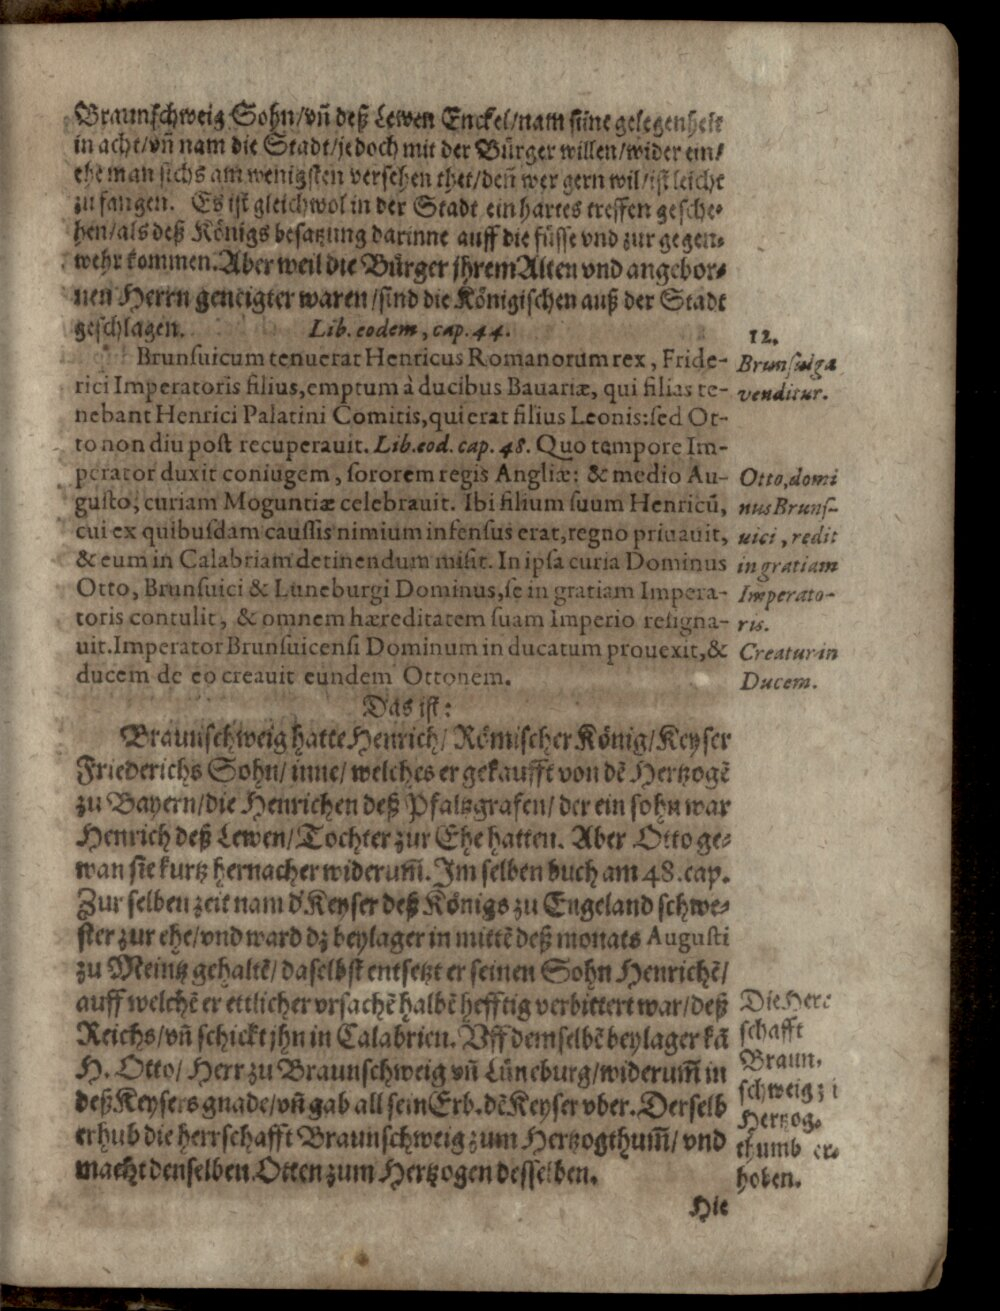 Braunschweig Sohn/vñ deß Lewen Enckel/nam seine gelegenheit
in acht/vñ nam die Stadt/jedoch mit der Bürger willen/wider ein/
ehe man sichs am wenigsten versehen thet/deñ wer gern wil/ist leicht
zu fangen. Es ist gleichwol in der Stadt ein hartes treffen gesche-
hen/als deß Königs besatzung darinne auff die füsse vnd zur gegen-
wehr kommen. Aber weil die Bürger jhrem Alten vnd angebor-
nen Herrn geneigter waren/sind die Königischen auß der Stadt
geschlagen. Lib. eodem, cap. 44.
Brunsuicum tenuerat Henricus Romanorum rex, Fride-
rici Imperatoris filius, emptum à ducibus Bauariæ, qui filias te-
nebant Henrici Palatini Comitis, qui erat filius Leonis: sed Ot-
to non diu post recuperauit. Lib. eod. cap. 48. Quo tempore Im-
perator duxit coniugem, sororem regis Angliæ: & medio Au-
gusto, curiam Moguntiæ celebrauit. Ibi filium suum Henricũ,
cui ex quibusdam caussis nimium infensus erat, regno priuauit,
& eum in Calabriam detinendum misit. In ipsa curia Dominus
Otto, Brunsuici & Luneburgi Dominus, se in gratiam Impera-
toris contulit, & omnem hæreditatem suam Imperio resigna-
uit. Imperator Brunsuicensi Dominum in ducatum prouexit, &
ducem de eo creauit eundem Ottonem.
12.
Brunsuiga
venditur.
Otto, domi
nus Bruns-
uici, redit
in gratiam
Imperato-
ris.
Creatur in
Ducem.
Das ist:
Braunschweig hatte Henrich/ Römischer König/Keyser
Friederichs Sohn/ inne/ welches er gekaufft von dẽ Hertzogẽ
zu Bayern/die Henrichen deß Pfaltzgrafen/ der ein sohn war
Henrich deß Lewen/Tochter zur Ehe hatten. Aber Otto ge-
wan sie kurtz hernacher widerum̃. Im selben buch am 48. cap.
Zur selben zeit nam d' Keyser deß Königs zu Engeland schwe-
ster zur ehe/vnd ward dz beylager in mittẽ deß monats Augusti
zu Meintz gehaltẽ/ daselbst entsetzt er seinen Sohn Henrichẽ/
auff welchẽ er ettlicher vrsachẽ halbẽ hefftig verbittert war/deß
Reichs/vñ schickt jhn in Calabrien. Vff demselbẽ beylager kã
H. Otto/ Herr zu Braunschweig vñ Lüneburg/widerum̃ in
deß Keysers gnade/vñ gab all sein Erb. dẽ Keyser vber. Derselb
erhub die herrschafft Braunschweig zum Hertzogthum̃/ vnd
macht denselben Otten zum Hertzogen desselben.
Die Herr
schafft
Braun-
schweig zi
Hertzog-
thumb er-
hoben.
Hie